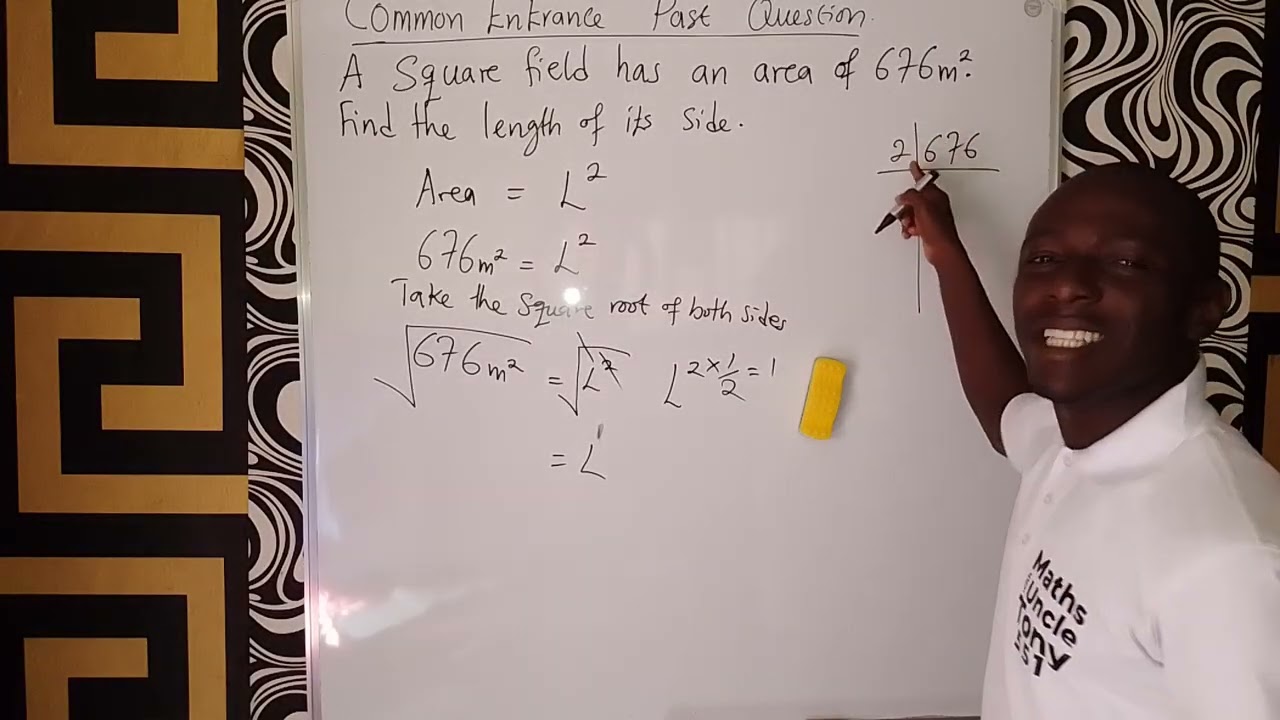 Common Entrance Past Question.
A Square field has an area of 676m².
Find the length of its side.
2|676
Area = L²
676m² = L²
Take the square root of both sides
√676m² = √L² L^(2×1/2) = 1
= L¹
Maths
Uncle
Tony